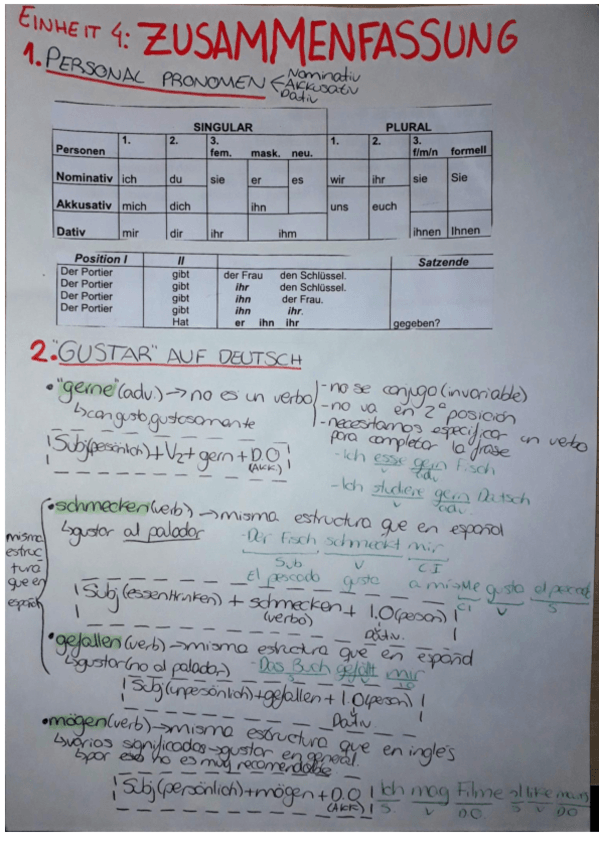 EINHEIT 4: ZUSAMMENFASSUNG
1. PERSONAL PRONOMEN < Nominativ
Akkusativ
Dativ
SINGULAR PLURAL
Personen 1. 2. 3. 1. 2. 3.
fem. mask. neu. f/m/n formell
Nominativ ich du sie er es wir ihr sie Sie
Akkusativ mich dich ihn uns euch
Dativ mir dir ihr ihm ihnen Ihnen
Position I II Satzende
Der Portier gibt der Frau den Schlüssel.
Der Portier gibt ihr den Schlüssel.
Der Portier gibt ihn der Frau.
Der Portier gibt ihn ihr.
Hat er ihn ihr gegeben?
2. "GUSTAR" AUF DEUTSCH
• "gerne" (adv.) → no es un verbo
- no se conjuga (invariable)
- no va en 2ª posición
- necesitamos especificar un verbo
para completar la frase
↳ con gusto, gustosamente
Subj (persönlich) + V2 + gern + D.O
(AKK)
- Ich esse gern Fisch
V adv.
- Ich studiere gern Deutsch
V adv.
misma
estruc
tura
que en
español
• schmecken (verb) → misma estructura que en español
↳ gustar al paladar
- Der Fisch schmeckt mir
Sub V CI
El pescado gusta a mi
Me gusta el pescado
CI V S
Subj (essen/trinken) + schmecken + I.O (person)
(verbo) Dativ.
• gefallen (verb) → misma estructura que en español
↳ gustar (no al paladar)
- Das Buch gefällt mir
Subj (unpersönlich) + gefallen + I.O (person)
Dativ
• mögen (verb) → misma estructura que en inglés
↳ varios significados → gustar en general
↳ por eso no es muy recomendable
Subj (persönlich) + mögen + D.O
(AKK)
Ich mag Filme
S. V D.O.
I like
S V DO